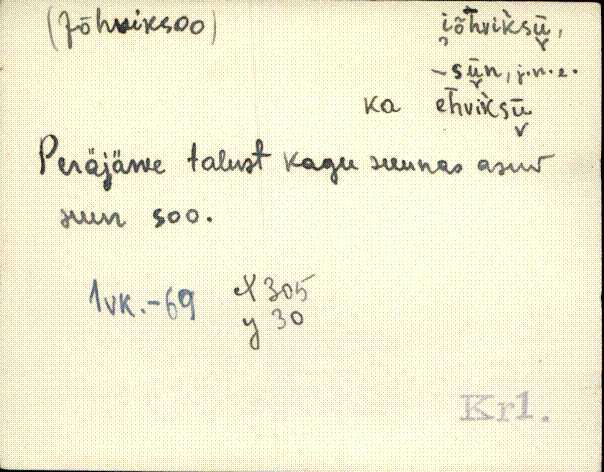 (Jõhviksoo)
i̯ōhvìksǖ,
-sǖn, j.n.e.
ka ehvìksǖ
Peräjärve talust kagu suunas asuv
suur soo.
1vk.-69
x 305
y 30
Kr1.